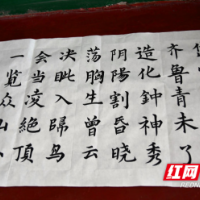 齐鲁青未了
造化鐘神秀
阴陽割昏晓
荡胸生曾云
决眦入歸鸟
会当凌絕頂
一览众山
红网